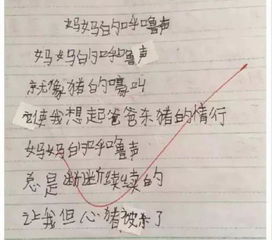 妈妈的呼噜声
妈妈的呼噜声
就像猪的嚎叫
使我想起爸爸杀猪的情行
妈妈的呼噜声
总是断断续续的
让我但心猪被杀了